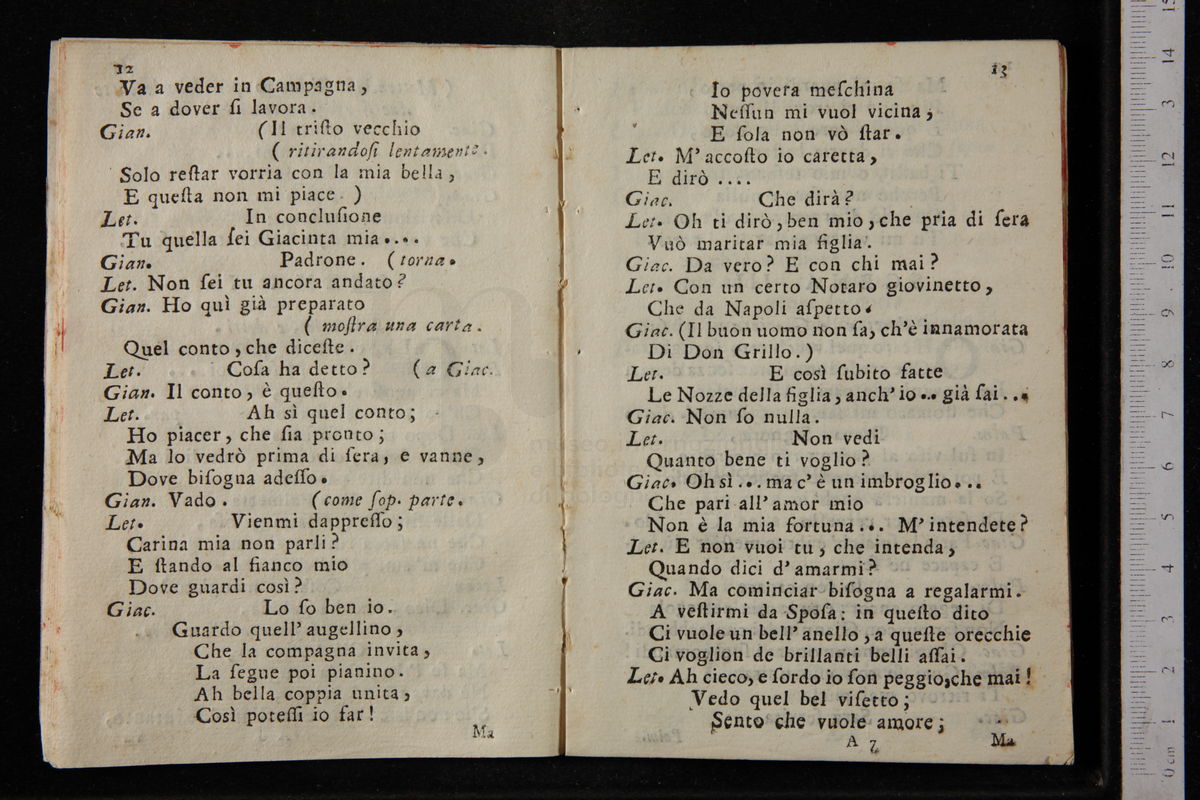 12
Va a veder in Campagna,
Se a dover ſi lavora.
Gian. (Il triſto vecchio
( ritirandoſi lentamente.
Solo reſtar vorria con la mia bella,
E queſta non mi piace. )
Let. In concluſione
Tu quella ſei Giacinta mia....
Gian. Padrone. (torna.
Let. Non ſei tu ancora andato?
Gian. Ho quì già preparato
( moſtra una carta.
Quel conto, che diceſte.
Let. Coſa ha detto? (a Giac.
Gian. Il conto, è queſto.
Let. Ah sì quel conto;
Ho piacer, che ſia pronto;
Ma lo vedrò prima di ſera, e vanne,
Dove biſogna adeſſo.
Gian. Vado. (come ſop. parte.
Let. Vienmi dappreſſo;
Carina mia non parli?
E ſtando al fianco mio
Dove guardi così?
Giac. Lo ſo ben io.
Guardo quell' augellino,
Che la compagna invita,
La ſegue poi pianino.
Ah bella coppia unita,
Così poteſſi io far!
Ma
13
Io povera meſchina
Neſſun mi vuol vicina;
E ſola non vò ſtar.
Let. M' accoſto io caretta,
E dirò ....
Giac. Che dirà?
Let. Oh ti dirò, ben mio, che pria di ſera
Vuò maritar mia figlia.
Giac. Da vero? E con chi mai?
Let. Con un certo Notaro giovinetto,
Che da Napoli aſpetto.
Giac. (Il buon uomo non ſa, ch'è innamorata
Di Don Grillo.)
Let. E così ſubito fatte
Le Nozze della figlia, anch' io .. già ſai...
Giac. Non ſo nulla.
Let. Non vedi
Quanto bene ti voglio?
Giac. Oh sì ... ma c' è un imbroglio...
Che pari all' amor mio
Non è la mia fortuna... M' intendete?
Let. E non vuoi tu, che intenda,
Quando dici d' amarmi?
Giac. Ma cominciar biſogna a regalarmi.
A veſtirmi da Spoſa: in queſto dito
Ci vuole un bell' anello, a queſte orecchie
Ci voglion de brillanti belli aſſai.
Let. Ah cieco, e ſordo io ſon peggio, che mai!
Vedo quel bel viſetto;
Sento che vuole amore;
A 7
Ma
0 cm 1 2 3 4 5 6 7 8 9 10 11 12 13 14 15